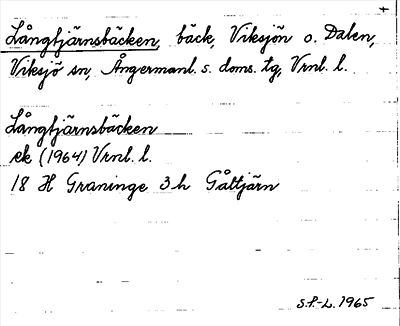 Långtjärnsbäcken, bäck, Viksjön o. Dalen,
Viksjö sn, Ångermanl. s. doms. tg, Vrnl. l.
Långtjärnsbäcken
ek (1964) Vrnl. l.
18 H Graninge 3h Gåltjärn
S.P.-L. 1965